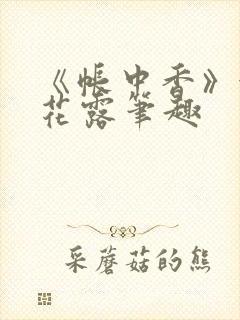 《帐中香》
花露笔趣
采蘑菇的熊